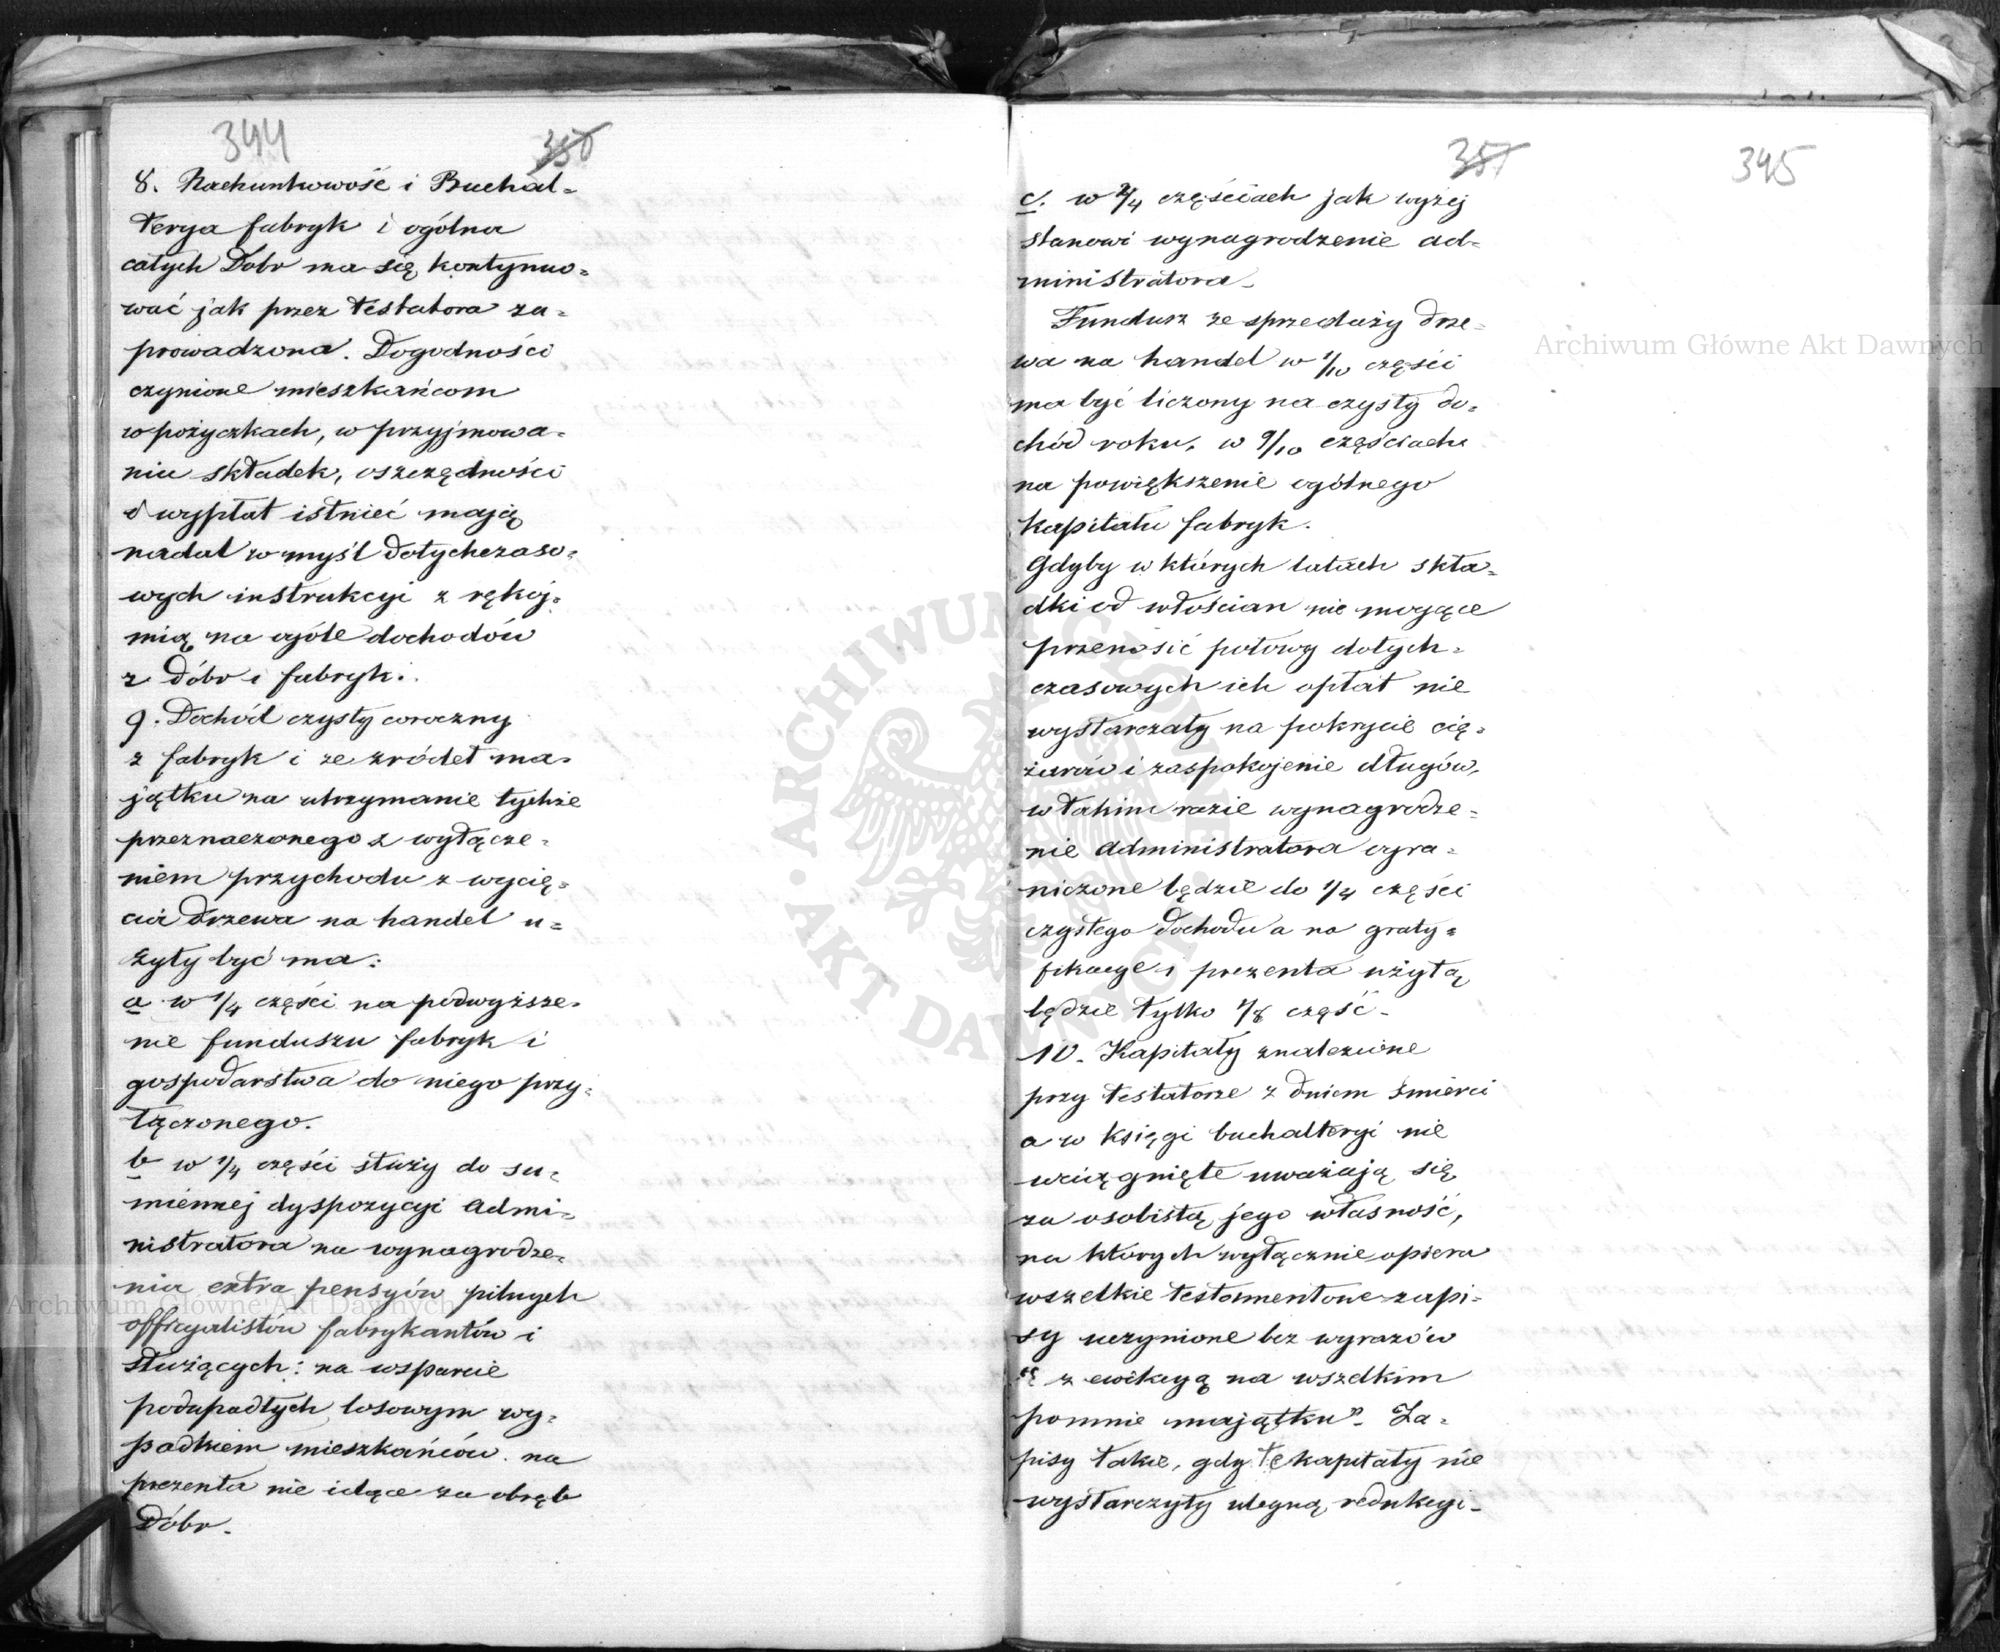 344 350
8. Rachunkowość i Buchal=
terya fabryk i ogólna
całych Dóbr ma się kontynuo=
wać jak przez testatora za=
prowadzona. Dogodności
czynione mieszkańcom
w pożyczkach, w przyjmowa=
niu składek, oszczędności
i wypłat istnieć mają
nadal w myśl dotychczaso=
wych instrukcyi z rękoj=
mią na ogóle dochodów
z Dóbr i fabryk.
9. Dochód czysty coroczny
z fabryk i ze zródeł ma=
jątku na utrzymanie tychże
przeznaczonego z wyłącze=
niem przychodu z wycię=
cia drzewa na handel u=
żyty być ma:
a w 1/4 części na podwyższe=
nie funduszu fabryk i
gospodarstwa do niego przy=
łączonego.
b w 1/4 części służy do su=
miennej dyspozycyi admi=
nistratora na wynagrodze=
nia extra pensyów pilnych
officyalistów fabrykantów i
służących: na wsparcie
podupadłych losowym wy=
padkiem mieszkańców na
prezenta nie idące za obręb
Dóbr.
351 345
c. w 2/4 częściach jak wyżej
stanowi wynagrodzenie ad=
ministratora.
Fundusz ze sprzedaży drze=
wa na handel w 1/10 części
ma być liczony na czysty do=
chód roku, w 9/10 częściach
na powiększenie ogólnego
kapitału fabryk.
Gdyby w których latach skła=
dki od włościan nie mogące
przenosić połowy dotych=
czasowych ich opłat nie
wystarczały na pokrycie cię=
żarów i zaspokojenie długów,
w takim razie wynagrodze=
nie administratora ogra=
niczone będzie do 1/4 części
czystego dochodu a na graty=
fikacye i prezenta użytą
będzie tylko 1/8 część.
10. Kapitały znalezione
przy testatorze z dniem śmierci
a w księgi buchalteryi nie
wciągnięte uważają się
za osobistą jego własność,
na których wyłącznie opiera
wszelkie testamentowe zapi=
sy uczynione bez wyrazów
„z ewikcyą na wszelkim
pomnie majątku”. Za=
pisy takie, gdy te kapitały nie
wystarczyły ulegną redukcyi.
Archiwum Główne Akt Dawnych
Archiwum Główne Akt Dawnych
ARCHIWUM GŁÓWNE AKT DAWNYCH